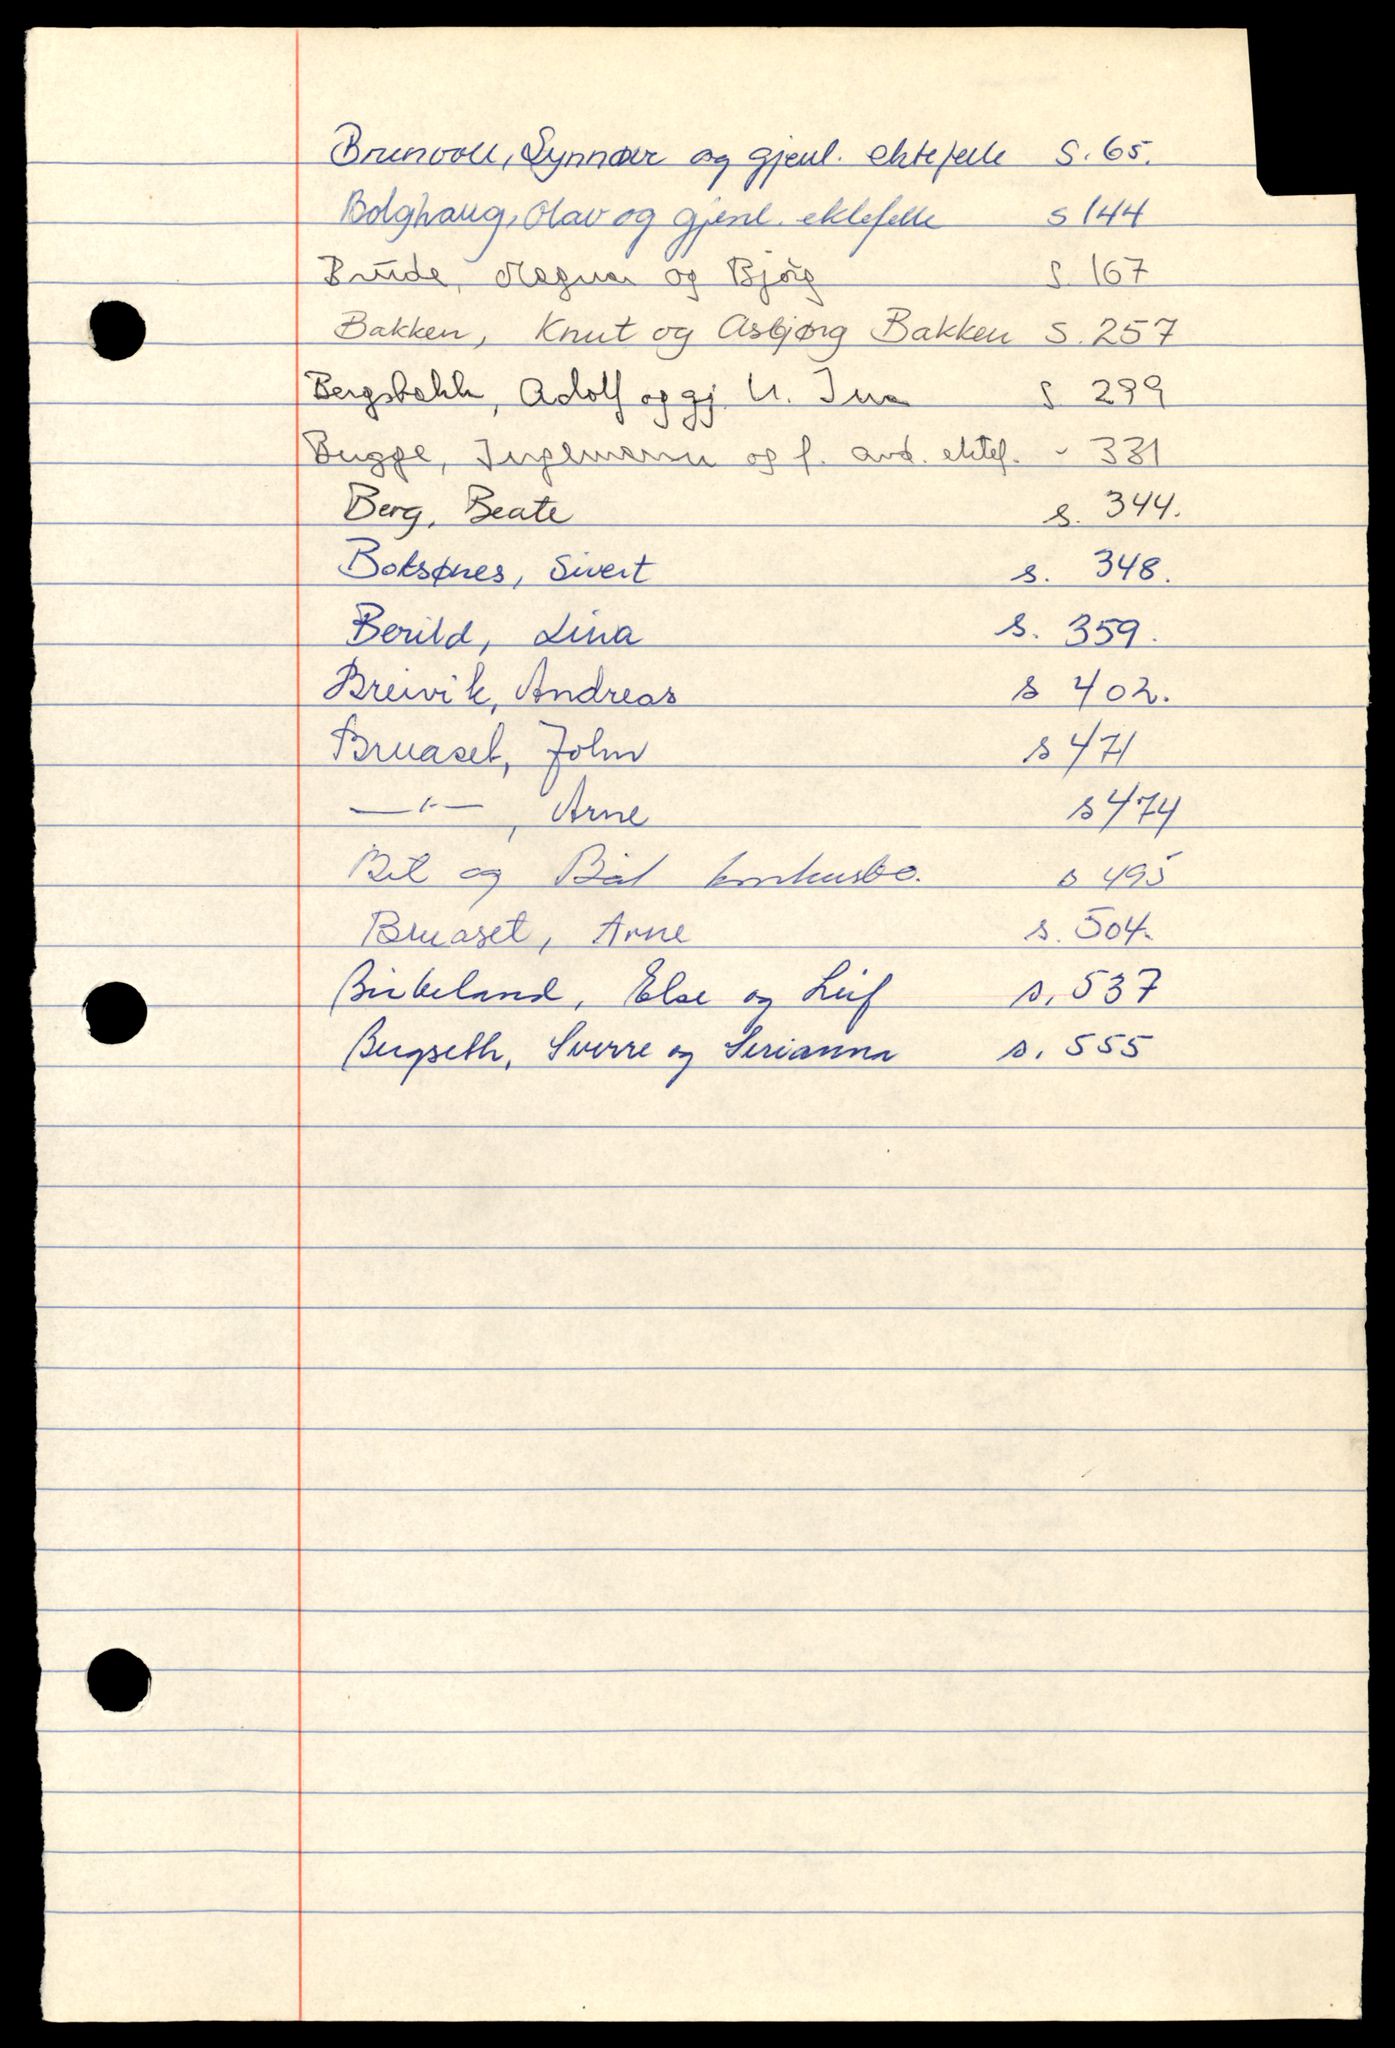 Brunvoll, Synnøve og gjenl. ektefelle S. 65.
Bolghaug, Olav og gjenl. ektefelle s 144
Brude, Magnar og Bjørg S. 167
Bakken, Knut og Asbjørg Bakken S. 257
Bergsbakk, Adolf og gj. U. Ina S 299
Bugge, Ingemann og f. avd. ektef. - 331
Berg, Beate s. 344.
Boksønes, Sivert s. 348.
Berild, Lina s. 359.
Breivik, Andreas s 402.
Bruaset, John s 471
—"—, Arne s 474
Bil og Båt konkursbo. s 495
Bruaset, Arne s. 504.
Birkeland, Else og Leif s. 537
Bergseth, Sverre og Serianna s. 555